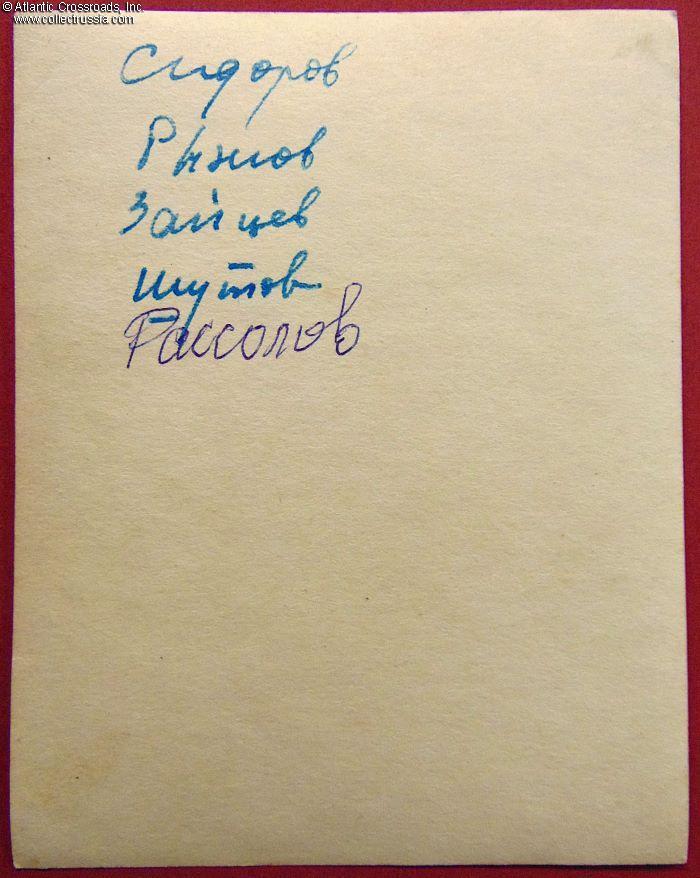 © Atlantic Crossroads, Inc.
www.collectrussia.com
Сидоров
Рыжов
Зайцев
Шутов
Рассолов